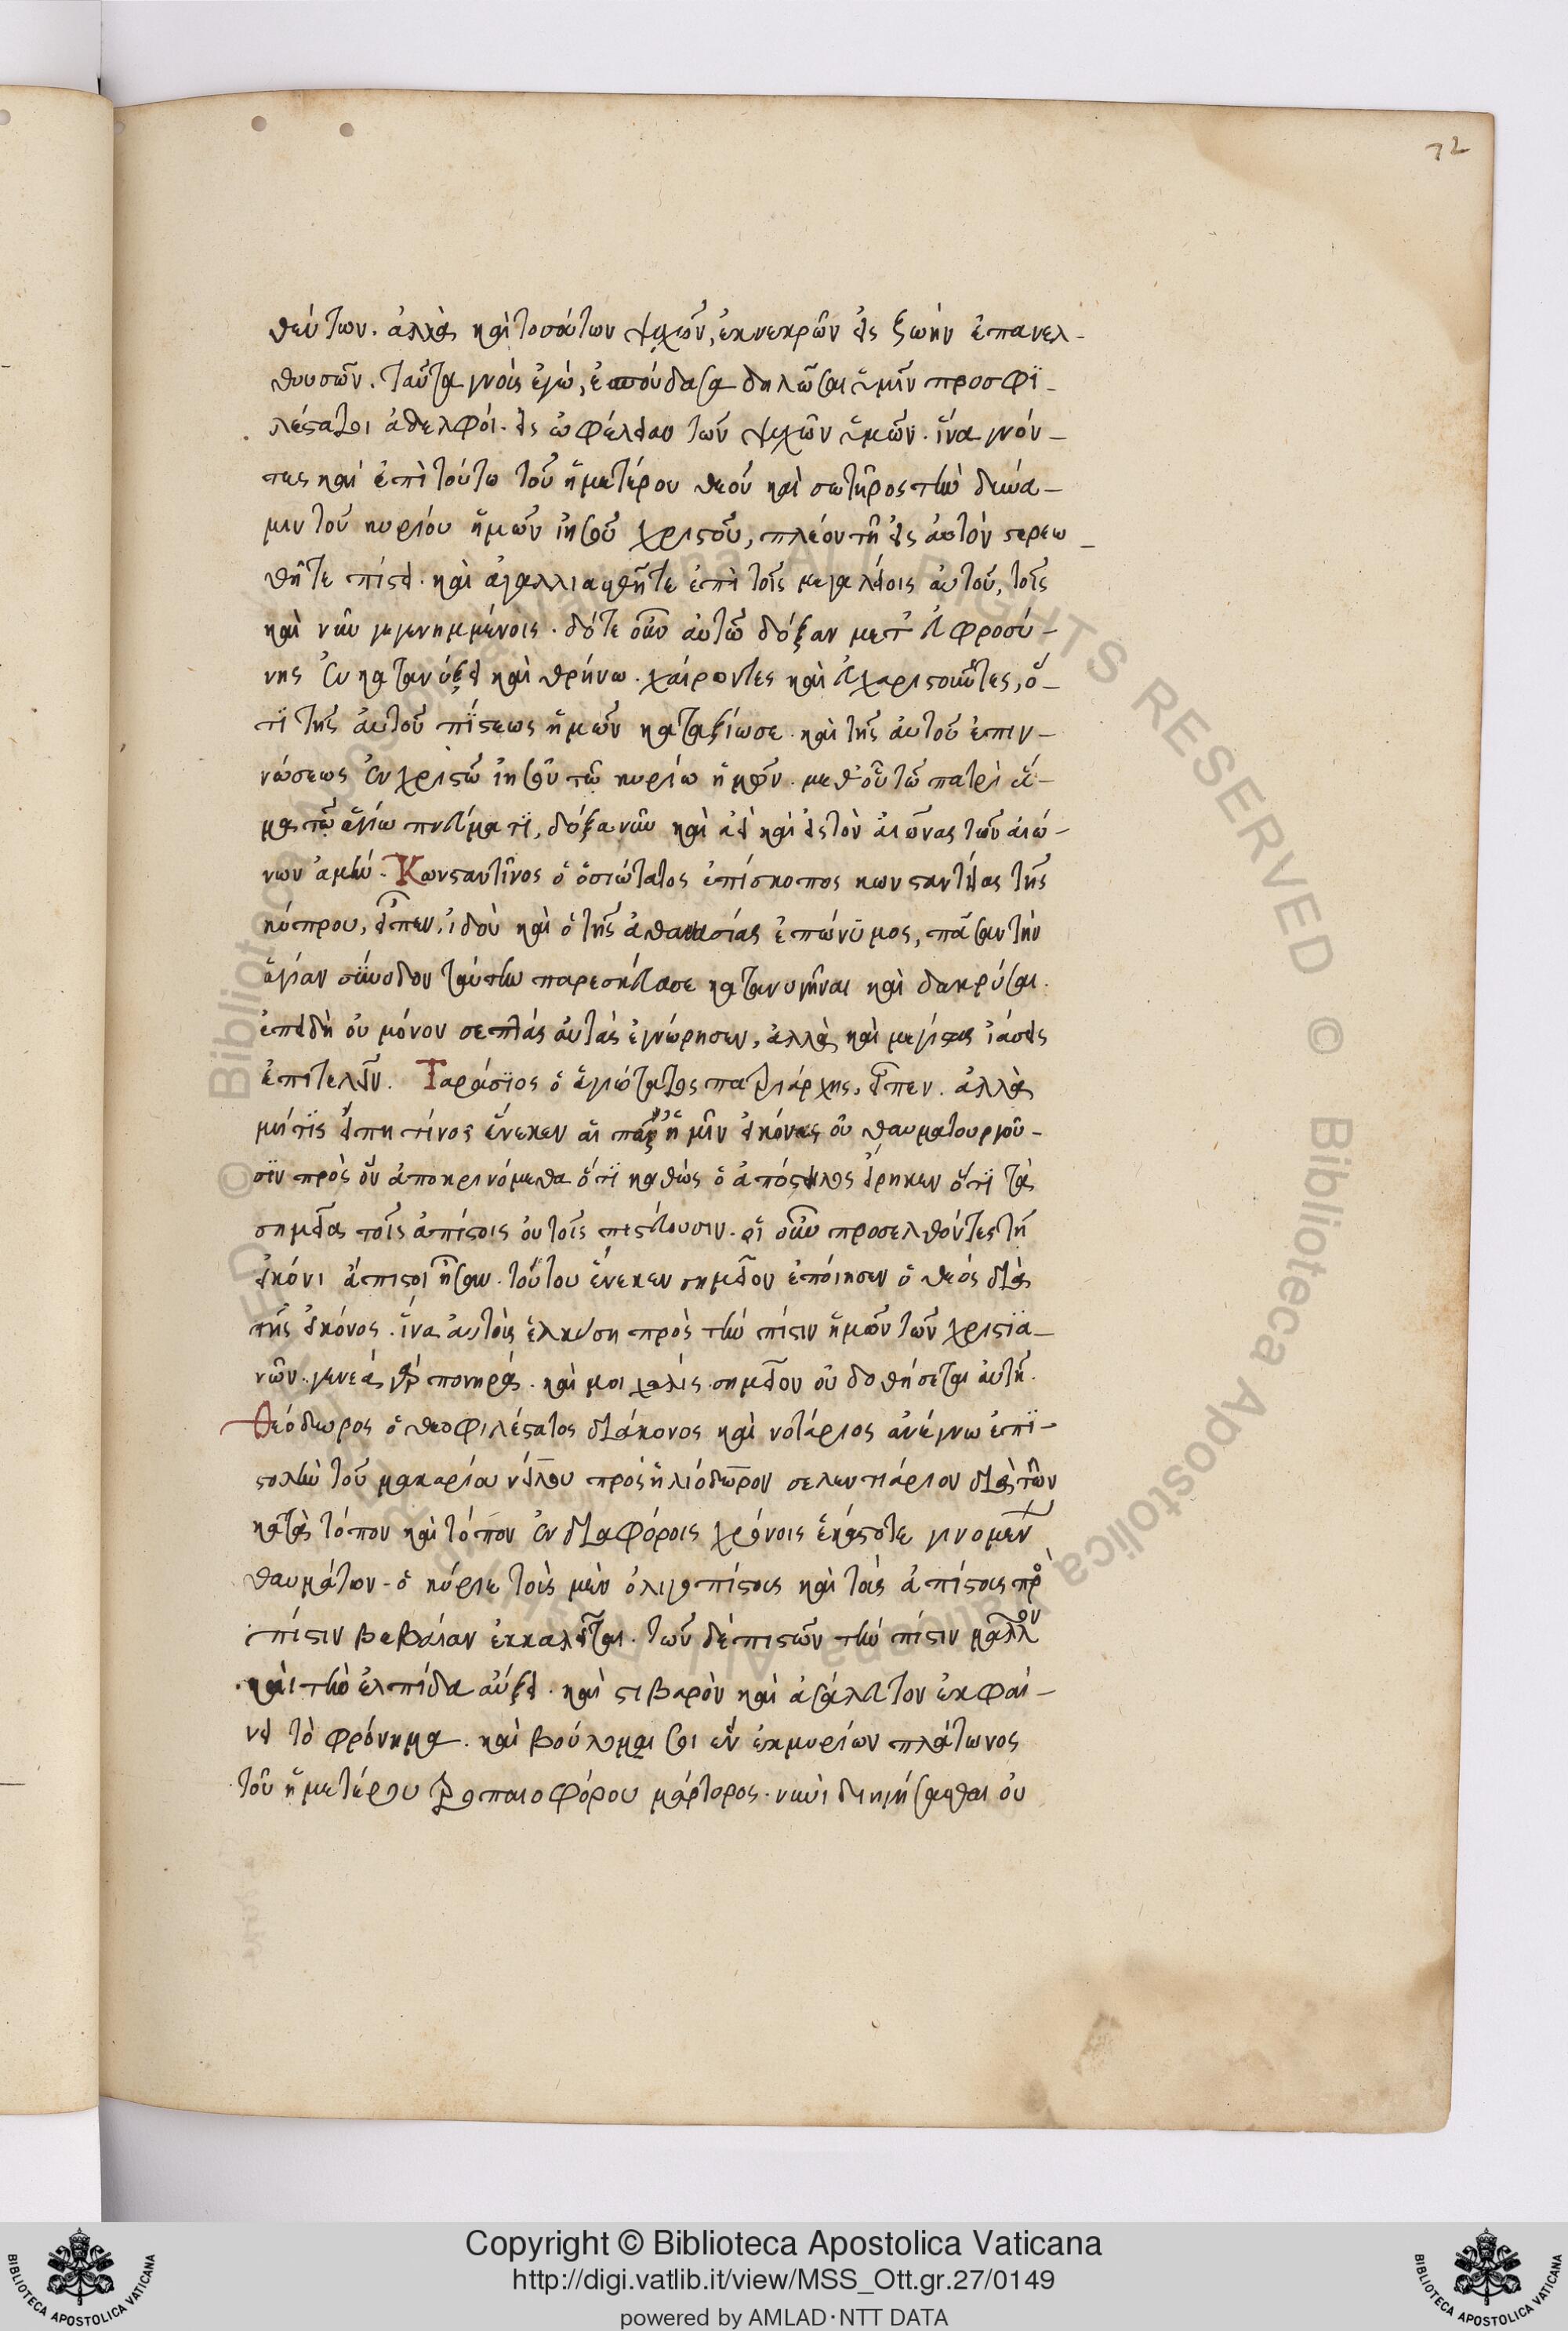 72
θέντων. ἀλλὰ καὶ τοσούτων ψυχῶν, ἐκ νεκρῶν εἰς ζωὴν ἐπανελ-
θουσῶν. ταῦτα γνοὺς ἐγὼ, ἐσπούδασα δηλῶσαι ὑμῖν προσφϊ-
λέστατοι ἀδελφοί. εἰς ὠφέλειαν τῶν ψυχῶν ὑμῶν. ἵνα γνόν-
τες καὶ ἐπὶ τούτω τοῦ ἡμετέρου θεοῦ καὶ σωτῆρος τὴν δύνα-
μιν τοῦ κυρίου ἡμῶν ἰησοῦ χριστοῦ, πλέον τῇ εἰς αὐτὸν στερεω-
θῆτε πίστει. καὶ ἀγαλλιασθῆτε ἐπὶ τοῖς μεγαλείοις αὐτοῦ, τοῖς
καὶ νῦν γεγενημμένοις. δότε οὖν αὐτῶ δόξαν μετ' εὐφροσύ-
νης ἐν κατανύξει καὶ θρήνω. χαίροντες καὶ εὐχαριστοῦντες, ὅ-
τϊ τῆς αὐτοῦ πίστεως ἡμῶν καταξίωσε. καὶ τῆς αὐτοῦ ἐπιγ-
νώσεως ἐν χριστῶ ἰησοῦ τῶ κυρίω ἡμῶν. μεθ' οὗ τῶ πατρὶ ἅ-
μα τῶ ἁγίω πνεύματϊ, δόξα νῦν καὶ ἀεὶ καὶ εἰς τὸν αἰῶνας τῶν αἰώ-
νων ἀμήν. Κωνσταντῖνος ὁ ὁσιώτατος ἐπίσκοπος κωνσταντείας τῆς
κύπρου, εἶπεν, ἰδοὺ καὶ ὁ τῆς ἀθανασίας ἐπώνυμος, πᾶσαν τὴν
ἁγίαν σύνοδον ταύτην παρεσκεύασε κατανυγῆναι καὶ δακρύσαι.
ἐπειδὴ οὐ μόνον σεπτὰς αὐτὰς ἐγνώρησεν, ἀλλὰ καὶ μεγίστας ἰάσεις
ἐπιτελεῖν. Ταράσϊος ὁ ἁγιώτατος πατριάρχης, εἶπεν. ἀλλὰ
μήτϊς εἴπη τίνος ἕνεκεν αἱ παρ' ἡμῖν εἰκόνες οὐ θαυματουργοῦ-
σϊν πρὸς ὃν ἀποκρινόμεθα ὅτϊ καθὼς ὁ ἀπόστολος εἴρηκεν ὅτϊ τὰ
σημεῖα τοῖς ἀπίστοις οὐ τοῖς πιστεύουσιν. οἱ οὖν προσελθόντες τῆ
εἰκόνι ἄπιστοι ἦσαν. τούτου ἕνεκεν σημεῖον ἐποίησεν ὁ θεὸς διὰ
τῆς εἰκόνος. ἵνα αὐτοὺς ἑλκύση πρὸς τὴν πίστιν ἡμῶν τῶν χριστϊα-
νῶν. γενεὰ γὰρ πονηρὰ. καὶ μοιχαλὶς. σημεῖον οὐ δοθήσεται αὐτῆ.
Θεόδωρος ὁ θεοφιλέστατος διάκονος καὶ νοτάριος ἀνέγνω ἐπϊ-
στολὴν τοῦ μακαρίου νείλου πρὸς ἡλιόδωρον σελεντιάριον διὰ τῶν
κατὰ τόπον καὶ τόπον ἐν διαφόροις χρόνοις ἑκάστοτε γινομένων
θαυμάτων. ὁ κύριε τοὺς μὲν ὀλιγοπίστους καὶ τοὺς ἀπίστους πρὸ
πίστιν βεβαίαν ἐκκαλεῖται. τῶν δὲ πιστῶν τὴν πίστιν μᾶλλον
καὶ τὴν ἐλπίδα αὔξει. καὶ στιβαρὸν καὶ ἀσάλευτον ἐκφαί-
νει τὸ φρόνημα. καὶ βούλομαι σοι ἓν ἐκ μυρίων πλάτωνος
τοῦ ἡμετέρου τροπαιοφόρου μάρτυρος. νυνὶ διηγήσασθαι οὐ
Copyright © Biblioteca Apostolica Vaticana
http://digi.vatlib.it/view/MSS_Ott.gr.27/0149
powered by AMLAD·NTT DATA